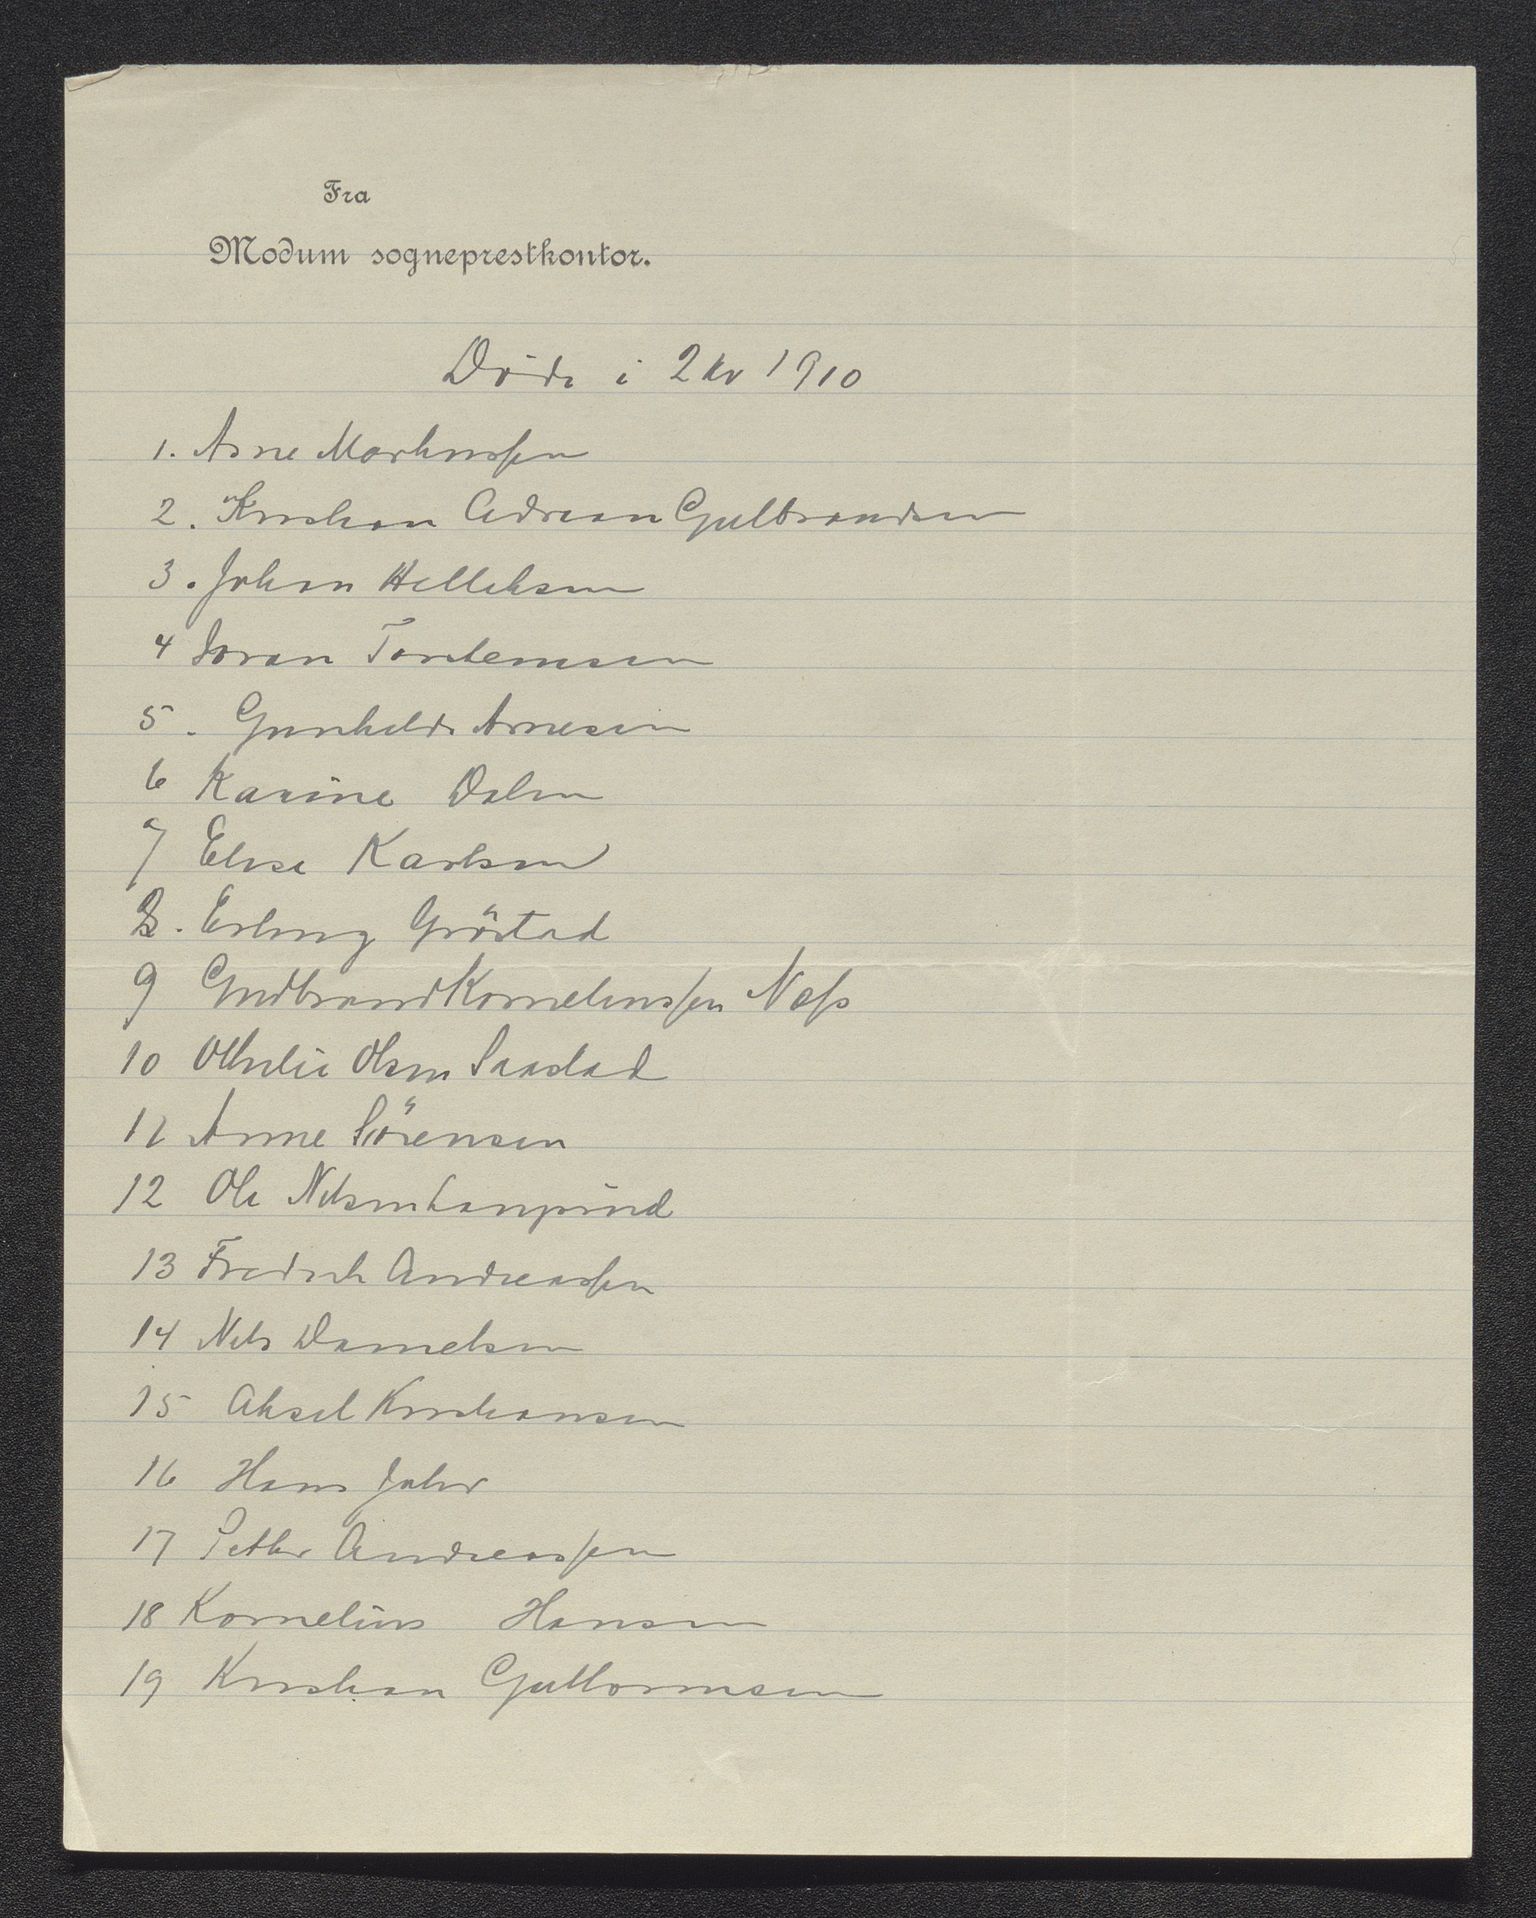 Fra
Modum sogneprestkontor.
Döde i 2 kv 1910
1. Arne Martinssen
2. Kristian Adrian Gulbrandsen
3. Johan Helleksen
4 Joran Torstensen
5. Gunhilda Arnesen
6 Karine Dalen
7 Elise Karlsen
8. Erling Gröstad
9 Gudbrand Korneliussen Næss
10 Othilie Olsen Saastad
11 Anne Sörensen
12 Ole Nilsen
13 Fredrik Andreassen
14 Nils Danielsen
15 Aksel Kristiansen
16 Hans Jahr
17 Petter Andreassen
18 Kornelius Hansen
19 Kristian Guttormsen